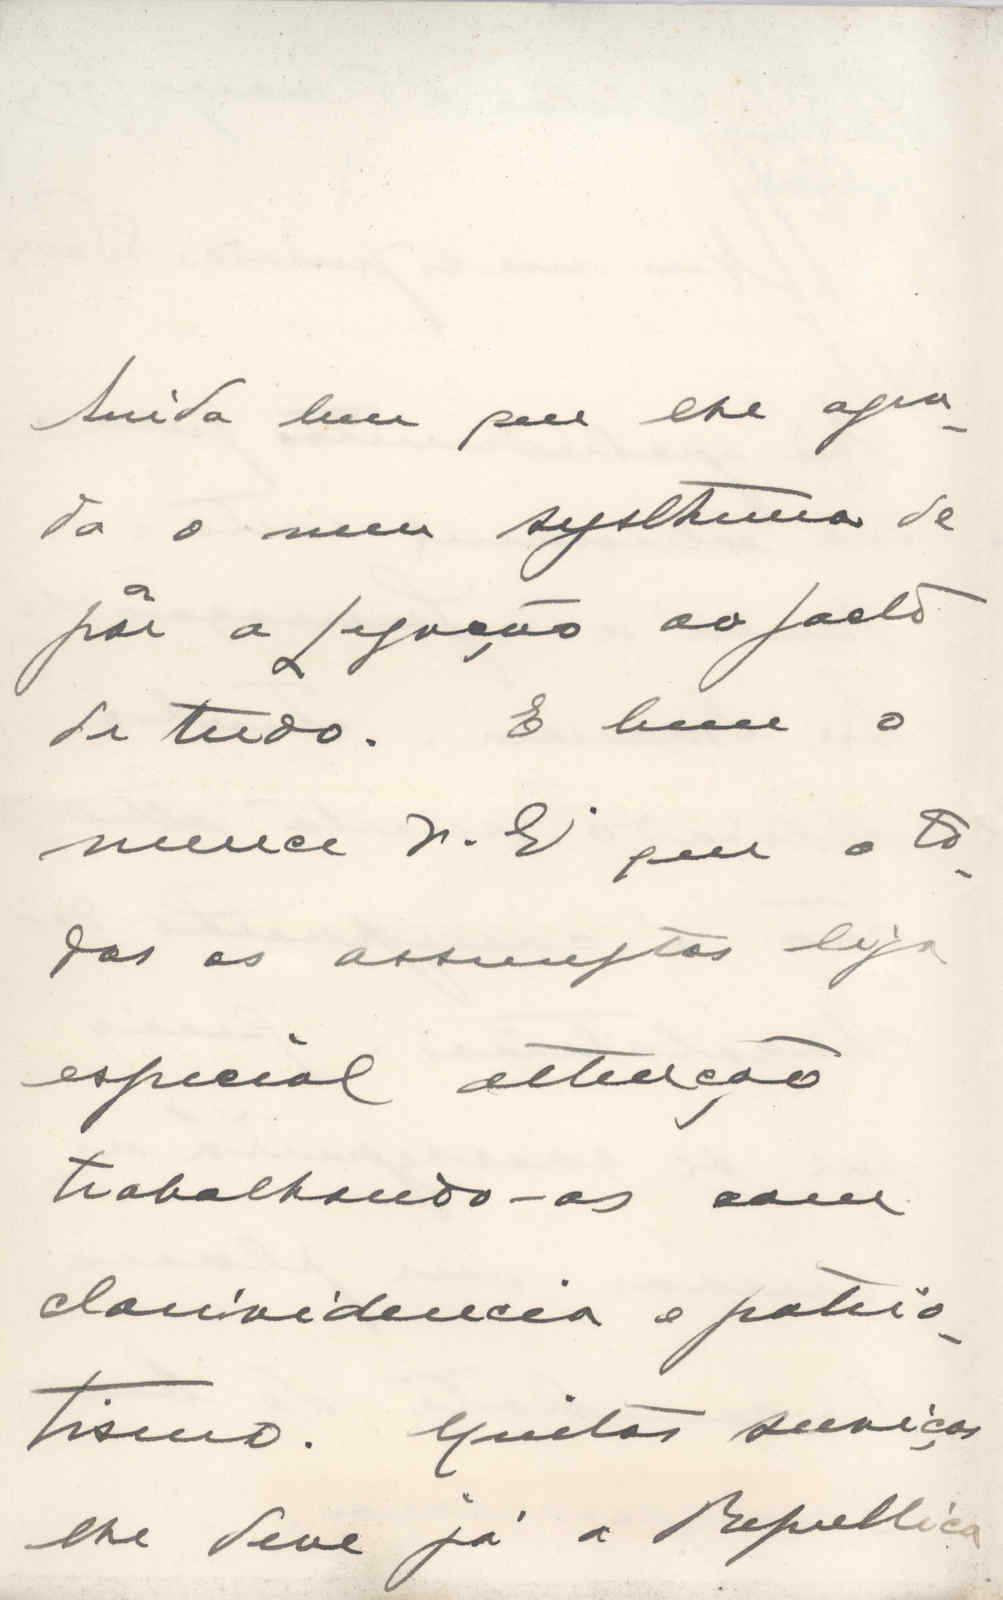 Ainda bem que lhe agra-
da o meu systhema de
pôr a Legação ao facto
de tudo. E bem o
merece V. Eª que a to-
dos os assumptos liga
especial attenção
trabalhando-os com
clarividencia e patrio-
tismo. Muitos serviços
lhe deve já a Republica